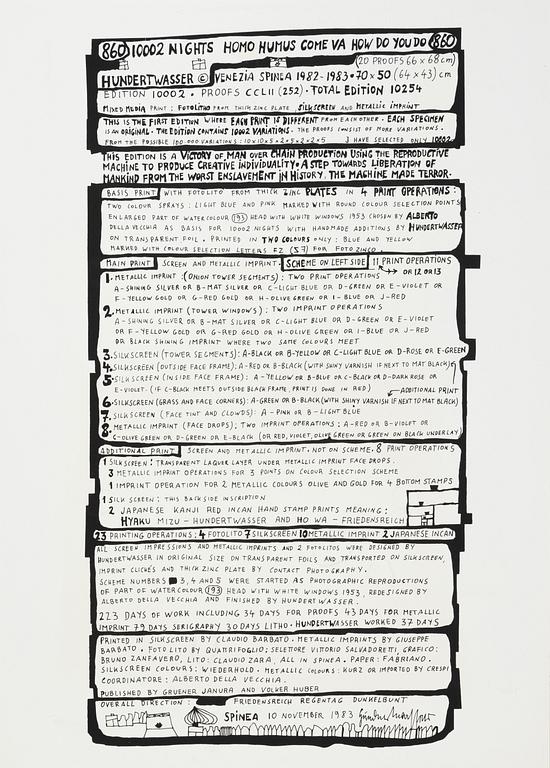 860 10002 NIGHTS HOMO HUMUS COME VA HOW DO YOU DO 860
(20 PROOFS 66 x 68 cm)
HUNDERTWASSER © VENEZIA SPINEA 1982-1983 • 70 x 50 (64 x 43) cm
EDITION 10002 • PROOFS CCLII (252) • TOTAL EDITION 10254
MIXED MEDIA PRINT: FOTOLITHO FROM THICK ZINC PLATE, SILKSCREEN AND METALLIC IMPRINT
THIS IS THE FIRST EDITION WHERE EACH PRINT IS DIFFERENT FROM EACH OTHER. EACH SPECIMEN
IS AN ORIGINAL. THE EDITION CONTAINS 10002 VARIATIONS. THE PROOFS CONSIST OF MORE VARIATIONS.
FROM THE POSSIBLE 100.000 VARIATIONS: 10x10x5x2x5x2x2x5 I HAVE SELECTED ONLY 10002
THIS EDITION IS A VICTORY OF MAN OVER CHAIN PRODUCTION USING THE REPRODUCTIVE
MACHINE TO PRODUCE CREATIVE INDIVIDUALITY. A STEP TOWARDS LIBERATION OF
MANKIND FROM THE WORST ENSLAVEMENT IN HISTORY. THE MACHINE MADE TERROR.
BASIS PRINT WITH FOTOLITO FROM THICK ZINC PLATES IN 4 PRINT OPERATIONS:
TWO COLOUR SPRAYS: LIGHT BLUE AND PINK MARKED WITH ROUND COLOUR SELECTION POINTS
ENLARGED PART OF WATERCOLOUR 193 HEAD WITH WHITE WINDOWS 1953 CHOSEN BY ALBERTO
DELLA VECCHIA AS BASIS FOR 10002 NIGHTS WITH HANDMADE ADDITIONS BY HUNDERTWASSER
ON TRANSPARENT FOIL. PRINTED IN TWO COLOURS ONLY: BLUE AND YELLOW
MARKED WITH COLOUR SELECTION LETTERS FZ (57) FOR FOTO ZINCO
MAIN PRINT SCREEN AND METALLIC IMPRINT. SCHEME ON LEFT SIDE 11 PRINT OPERATIONS
OR 12 OR 13
1. METALLIC IMPRINT: (ONION TOWER SEGMENTS): TWO PRINT OPERATIONS
A-SHINING SILVER OR B-MAT SILVER OR C-LIGHT BLUE OR D-GREEN OR E-VIOLET OR
F-YELLOW GOLD OR G-RED GOLD OR H-OLIVE GREEN OR I-BLUE OR J-RED
2. METALLIC IMPRINT (TOWER WINDOWS): TWO IMPRINT OPERATIONS
A-SHINING SILVER OR B-MAT SILVER OR C-LIGHT BLUE OR D-GREEN OR E-VIOLET
OR F-YELLOW GOLD OR G-RED GOLD OR H-OLIVE GREEN OR I-BLUE OR J-RED
OR BLACK SHINING IMPRINT WHERE TWO SAME COLOURS MEET
3. SILKSCREEN (TOWER SEGMENTS): A-BLACK OR B-YELLOW OR C-LIGHT BLUE OR D-ROSE OR E-GREEN
4. SILKSCREEN (OUTSIDE FACE FRAME): A-RED OR B-BLACK (WITH SHINY VARNISH IF NEXT TO MAT BLACK)
5. SILKSCREEN (INSIDE FACE FRAME): A-YELLOW OR B-BLUE OR C-BLACK OR D-DARK ROSE OR
E-VIOLET. (IF C-BLACK MEETS OUTSIDE BLACK FRAME, PRINT IS DONE IN RED) ADDITIONAL PRINT
6. SILKSCREEN (GRASS AND FACE CORNERS): A-GREEN OR B-BLACK (WITH SHINY VARNISH IF NEXT TO MAT BLACK)
7. SILKSCREEN (FACE TINT AND CLOWDS): A-PINK OR B-LIGHT BLUE
8. METALLIC IMPRINT (FACE DROPS); TWO IMPRINT OPERATIONS: A-RED OR B-VIOLET OR
C-OLIVE GREEN OR D-GREEN OR E-BLACK (OR RED, VIOLET, OLIVE GREEN OR GREEN ON BLACK UNDERLAY)
ADDITIONAL PRINT SCREEN AND METALLIC IMPRINT. NOT ON SCHEME. 8 PRINT OPERATIONS
1 SILKSCREEN: TRANSPARENT LAQUER LAYER UNDER METALLIC IMPRINT FACE DROPS.
3 METALLIC IMPRINT OPERATIONS FOR 3 POINTS ON COLOUR SELECTION SCHEME
1 IMPRINT OPERATION FOR 2 METALLIC COLOURS OLIVE AND GOLD FOR 4 BOTTOM STAMPS
1 SILK SCREEN: THIS BACKSIDE INSCRIPTION
2 JAPANESE KANJI RED INCAN HAND STAMP PRINTS MEANING:
HYAKU MIZU - HUNDERTWASSER AND HO WA - FRIEDENSREICH
23 PRINTING OPERATIONS; 4 FOTOLITO 7 SILKSCREEN 10 METALLIC IMPRINT 2 JAPANESE INCAN
ALL SCREEN IMPRESSIONS AND METALLIC IMPRINTS AND 2 FOTOLITOS WERE DESIGNED BY
HUNDERTWASSER IN ORIGINAL SIZE ON TRANSPARENT FOILS AND TRANSPORTED ON SILKSCREEN,
IMPRINT CLICHÉS AND THICK ZINC PLATE BY CONTACT PHOTOGRAPHY.
SCHEME NUMBERS 3, 4 AND 5 WERE STARTED AS PHOTOGRAPHIC REPRODUCTIONS
OF PART OF WATERCOLOUR 193 HEAD WITH WHITE WINDOWS 1953, REDESIGNED BY
ALBERTO DELLA VECCHIA AND FINISHED BY HUNDERTWASSER.
223 DAYS OF WORK INCLUDING 34 DAYS FOR PROOFS 43 DAYS FOR METALLIC
IMPRINT 79 DAYS SERIGRAPHY 30 DAYS LITHO. HUNDERTWASSER WORKED 37 DAYS
PRINTED IN SILKSCREEN BY CLAUDIO BARBATO. METALLIC IMPRINTS BY GIUSEPPE
BARBATO. FOTO LITO BY QUATRIFOGLIO; SELETTORE VITTORIO SALVADORETTI, GRAFICO:
BRUNO ZANFAVERO, LITO: CLAUDIO ZARA, ALL IN SPINEA. PAPER: FABRIANO.
SILKSCREEN COLOURS: WIEDERHOLD. METALLIC COLOURS: KURZ OR IMPORTED BY CRESPI
COORDINATORE: ALBERTO DELLA VECCHIA.
PUBLISHED BY GRUENER JANURA AND VOLKER HUBER
OVERALL DIRECTION: FRIEDENSREICH REGENTAG DUNKELBUNT
SPINEA 10 NOVEMBER 1983 Hundertwasser